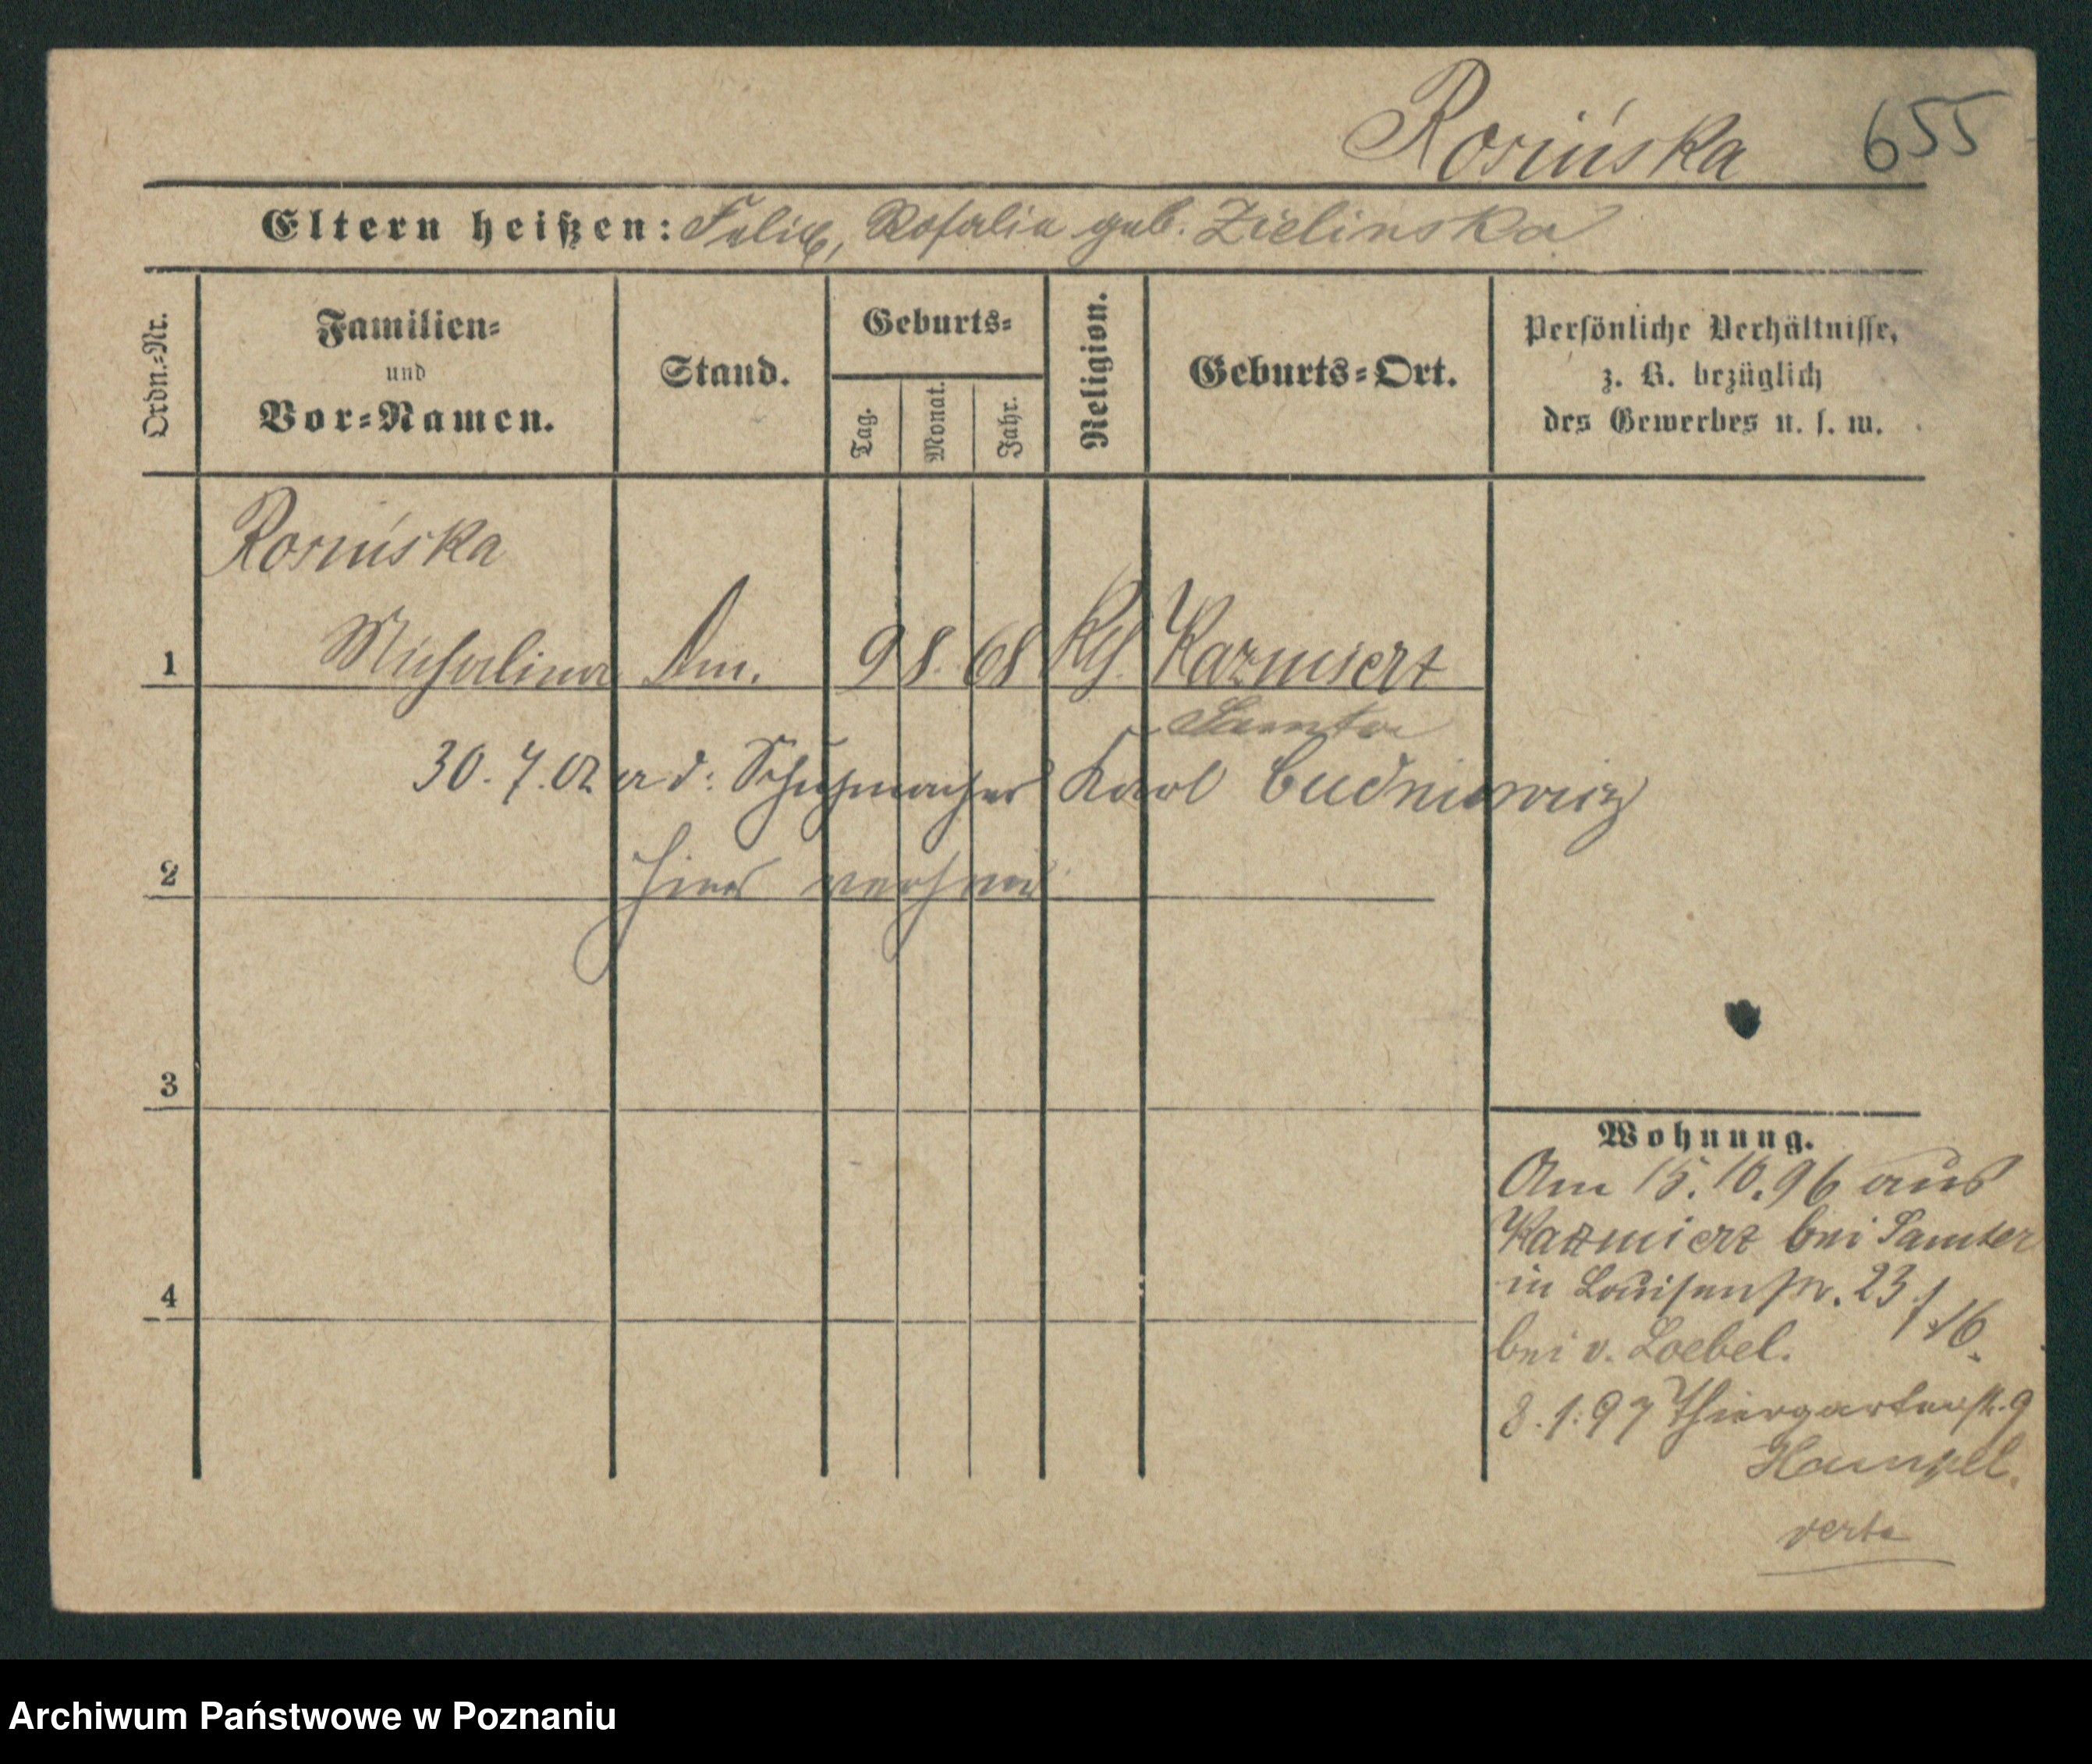 Rosińska 655
Eltern heißen: Felix, Rosalia geb. Zielinska
Ordn.-Nr.
Familien-
und
Vor-Namen.
Stand.
Geburts-
Tag.
Monat.
Jahr.
Religion.
Geburts-Ort.
Persönliche Verhältnisse,
z. B. bezüglich
des Gewerbes u. s. w.
Rosińska
1 Michalina Am. 9 8. 68 Kth. Kazmierz
Samter
30. 7. 02 a d: Schuhmacher Karl Cudniewicz
2 hier verh
3
4
Wohnung.
Am 15. 10. 96 aus
Kazmierz bei Samter
in Louisenstr. 23
bei v. Loebel.
8. 1. 97 Thiergartenstr. 9
Hampel.
verte
Archiwum Państwowe w Poznaniu